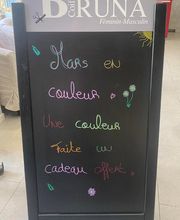 BRUNA
Coif
Féminin Masculin
Mars en
couleur
Une couleur
Faite un
cadeau offert